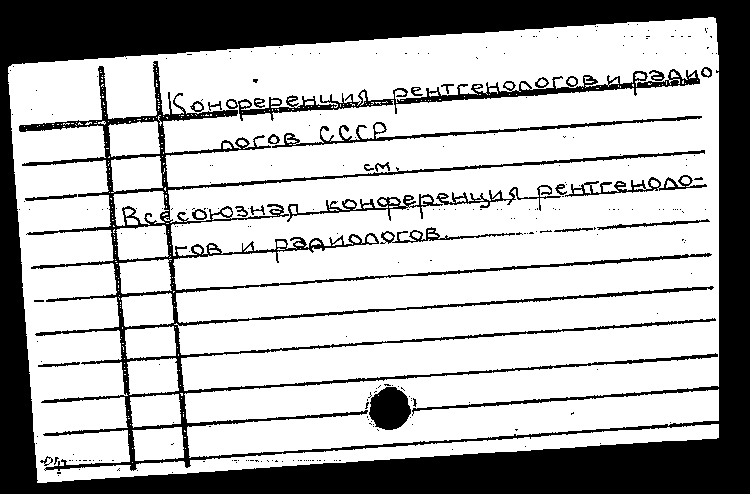 Конференция рентгенологов и радио-
логов СССР
см.
Всесоюзная конференция рентгеноло-
гов и радиологов.